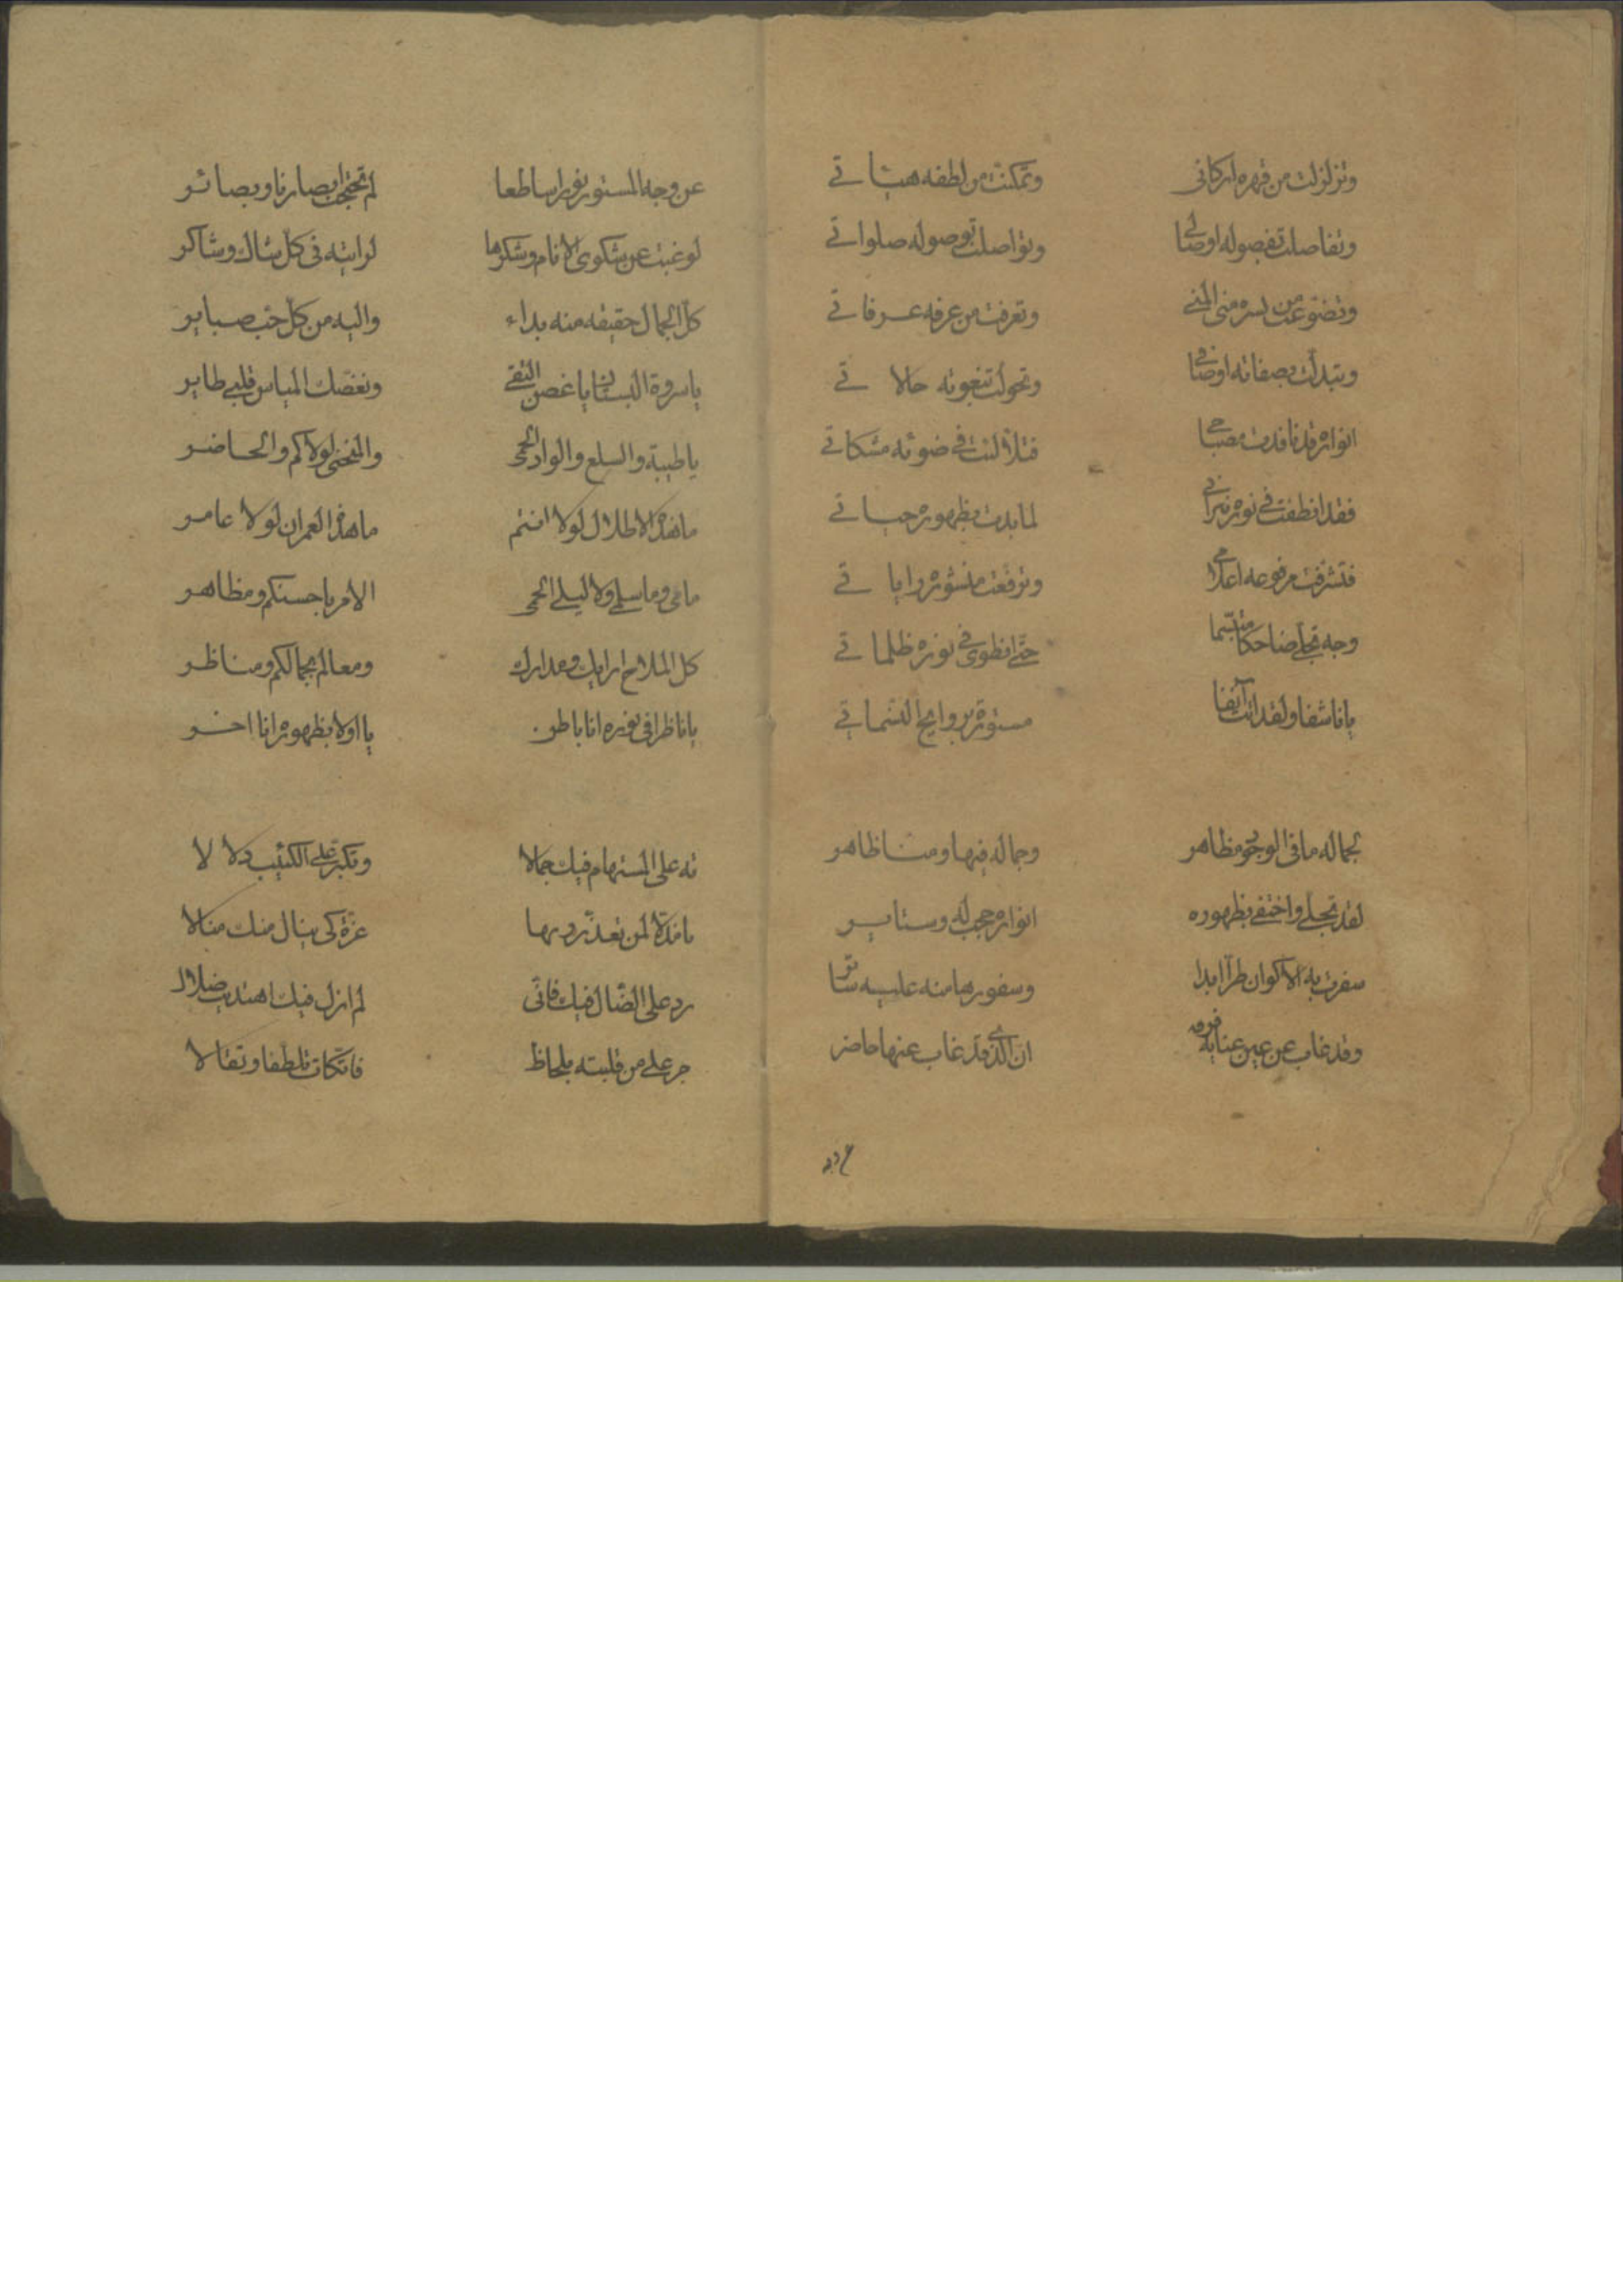 وتزلزلت من قهره اركانى وتمكنت من لطفه هيئاتي
وتفاصلت بفصوله اوصالى وتواصلت بوصوله صلواتي
وتضوعت من نشره منى المنى وتعرفت من عرفه عرفاتي
وتبدلت بصفاته اوصافى وتحولت بنعوته حالاتي
انواره قد نافدت مصباحى فتلألئت في ضوئه مشكاتي
فقد انطفت في نوره نيرانى لما بدت بظهوره حياتي
فتشرفت مرفوعه اعلامى وترفعت منشوره راياتي
وجه تجلى ضاحكا متبسما حتى انطوى في نوره ظلماتي
يا ناشقا ولقد اتت آنفا مستورة بروايح النسماتي
لجماله ما فى الوجود مظاهر وجماله فيها ومنا ظاهر
لقد تجلى واختفى بظهوره انواره حجب له وستاير
سفرت به الاكوان طرا ابدا وسفورها منه عليه ساتر
وقد غاب عن عين عنايه ان الذى قد غاب عنها حاضر
عن وجه المستور نورا ساطعا لم تحتجب ابصارنا وبصائر
لو غبت عن شكوى الانام وشكرها لرايته فى كل شاك وشاكر
كل الجمال حقيقه منه بداء واليه من كل حب صباير
يا سروة البستان يا غصن النقى وبغصنك المياس قلبي طاير
يا طيبة والسلع والوادى الحمى والمنحنى لولاكم والحاضر
ما هذه الاطلال لولا انتم ما هذه العمران لولا عامر
ما مى وما سلمى ولا ليلى الحمى الامرايا حسنكم ومظاهر
كل الملاح ارايك ومدارك ومعالم لجمالكم ومناظر
يا ناظرا فى نوره انا باطن يا اولا بظهوره انا اخر
ته على المستهام فيك جمالا وتكبر على الكئيب دلالا
عزة كى ينال منك منالا
رد على الضال فيك فانى لم ازل فيك اهتديت ضلالا
جر على من قلبته بلحاظ